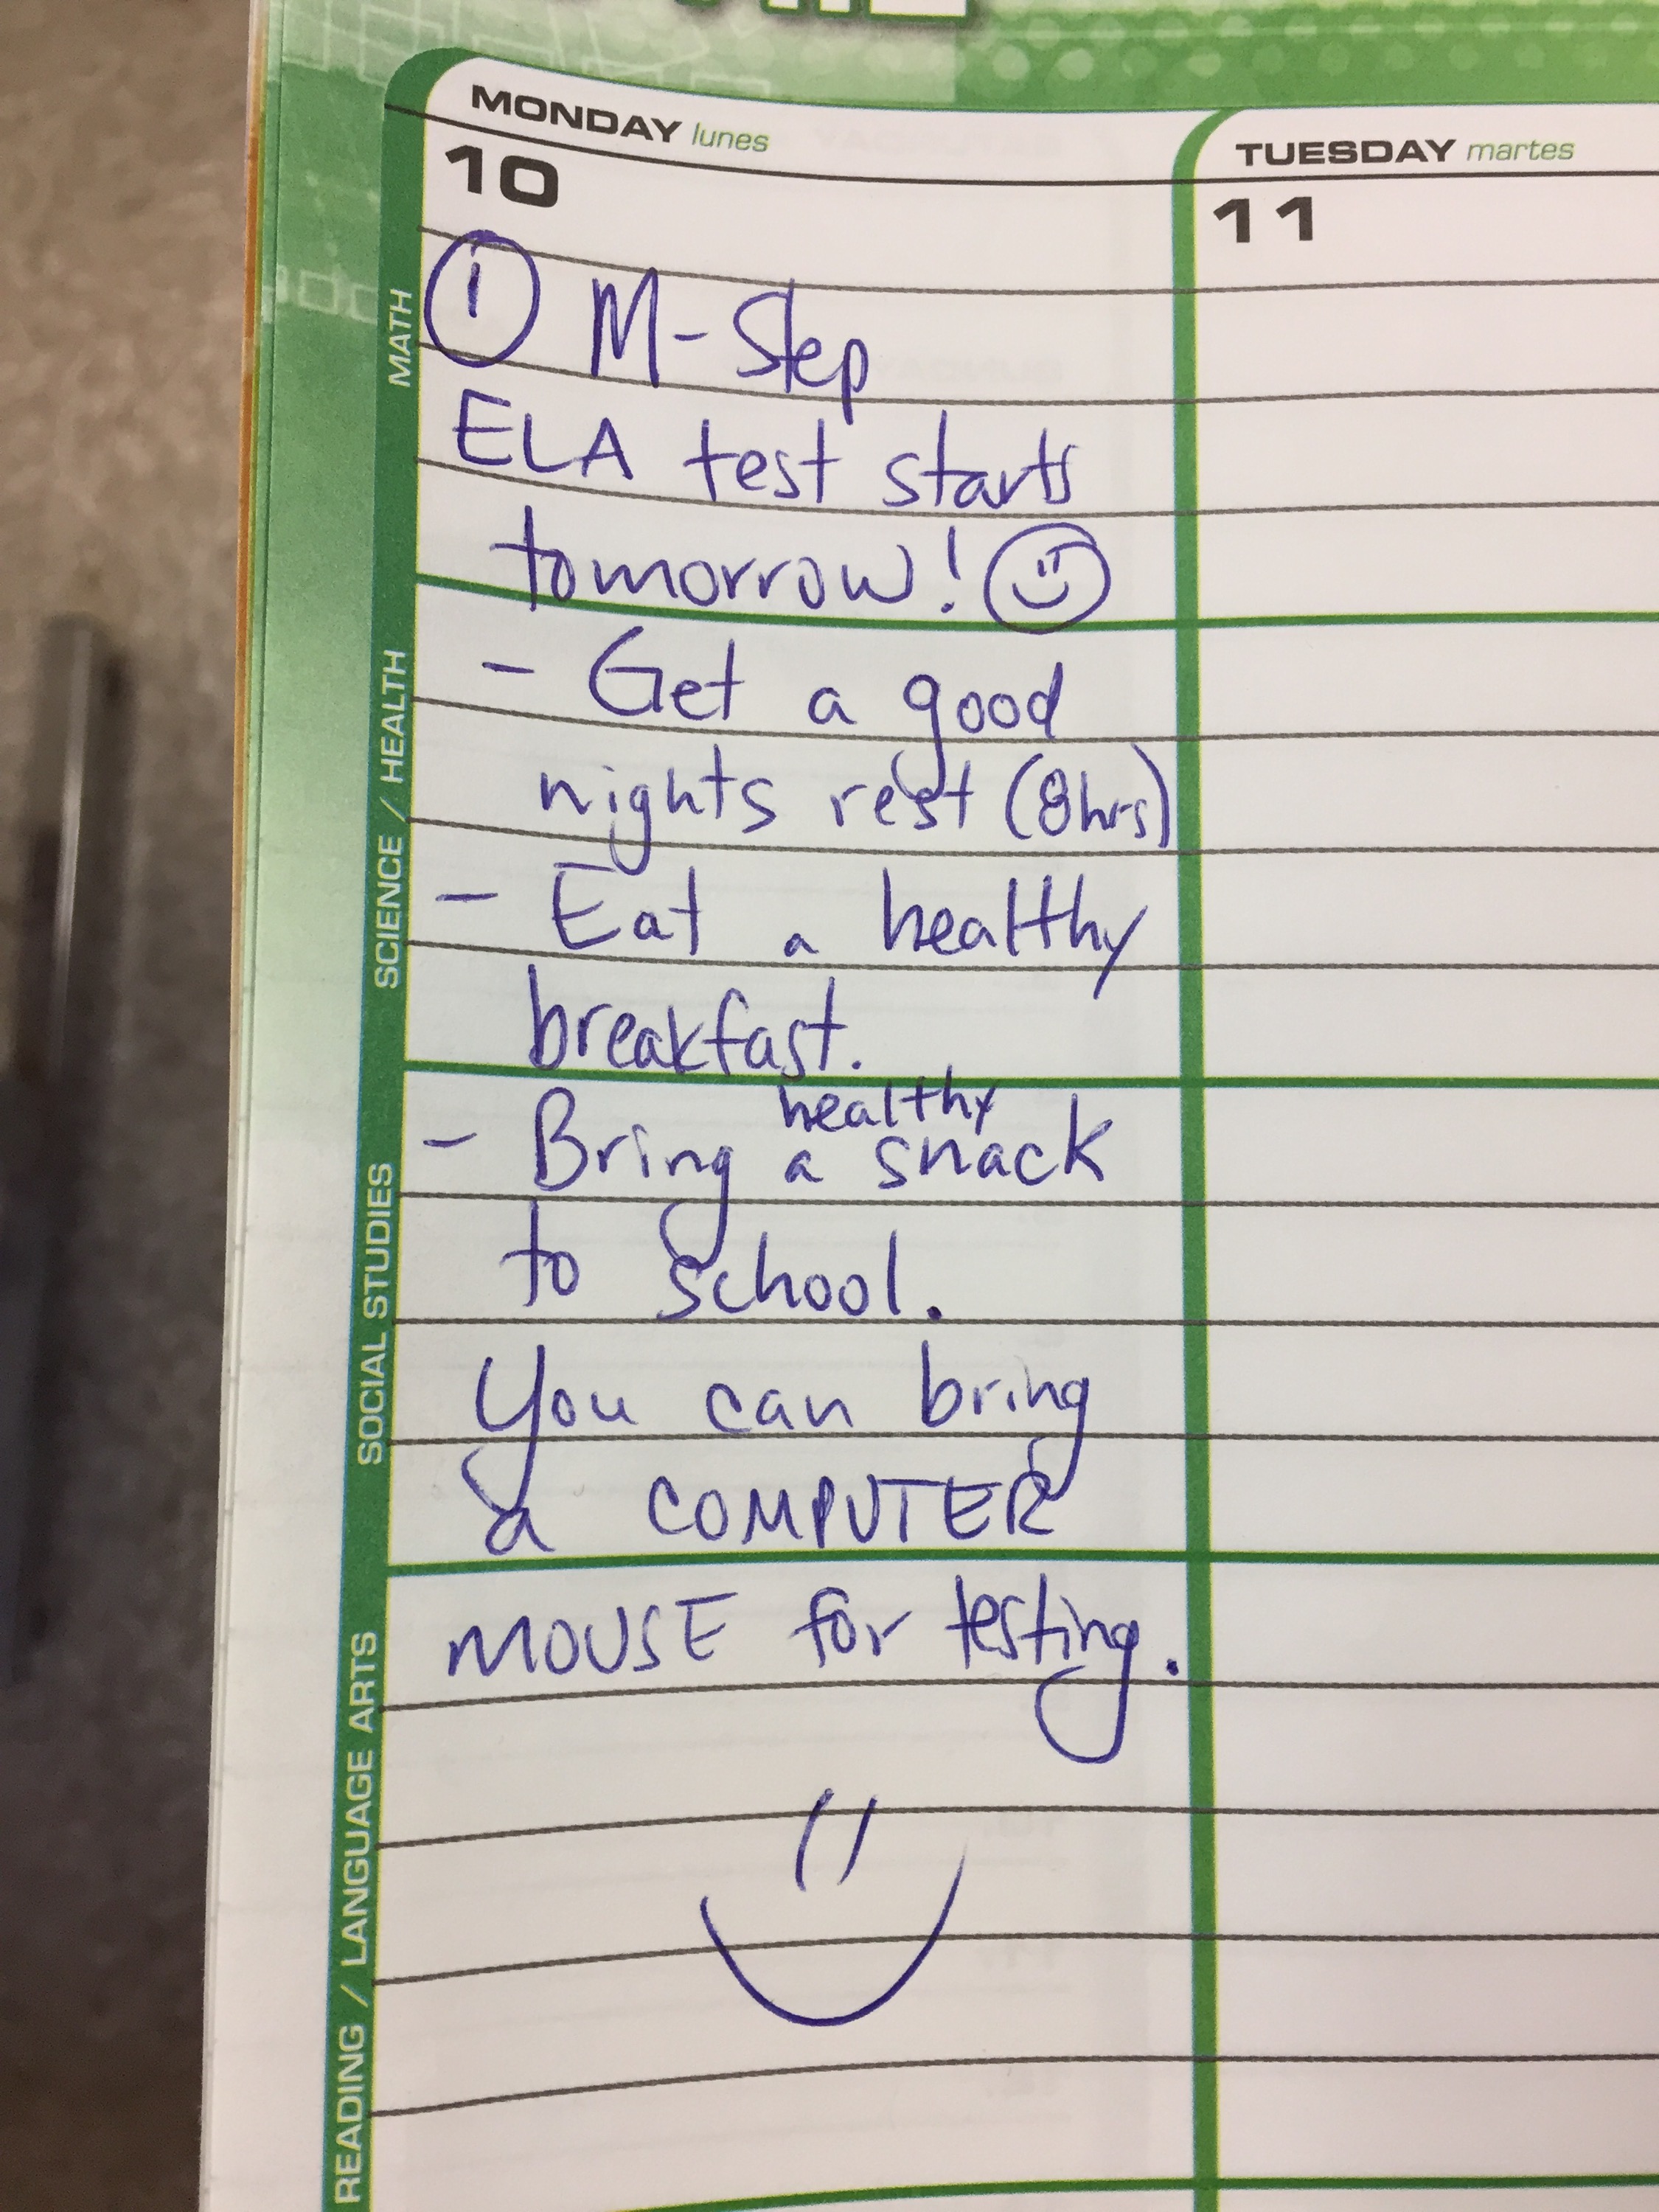 MONDAY lunes
TUESDAY martes
10
11
① M-Step
ELA test starts
tomorrow!
- Get a good
nights rest (8hrs)
- Eat a healthy
breakfast.
healthy
- Bring a snack
to school.
You can bring
a COMPUTER
MOUSE for testing.
MATH
SCIENCE / HEALTH
SOCIAL STUDIES
READING / LANGUAGE ARTS